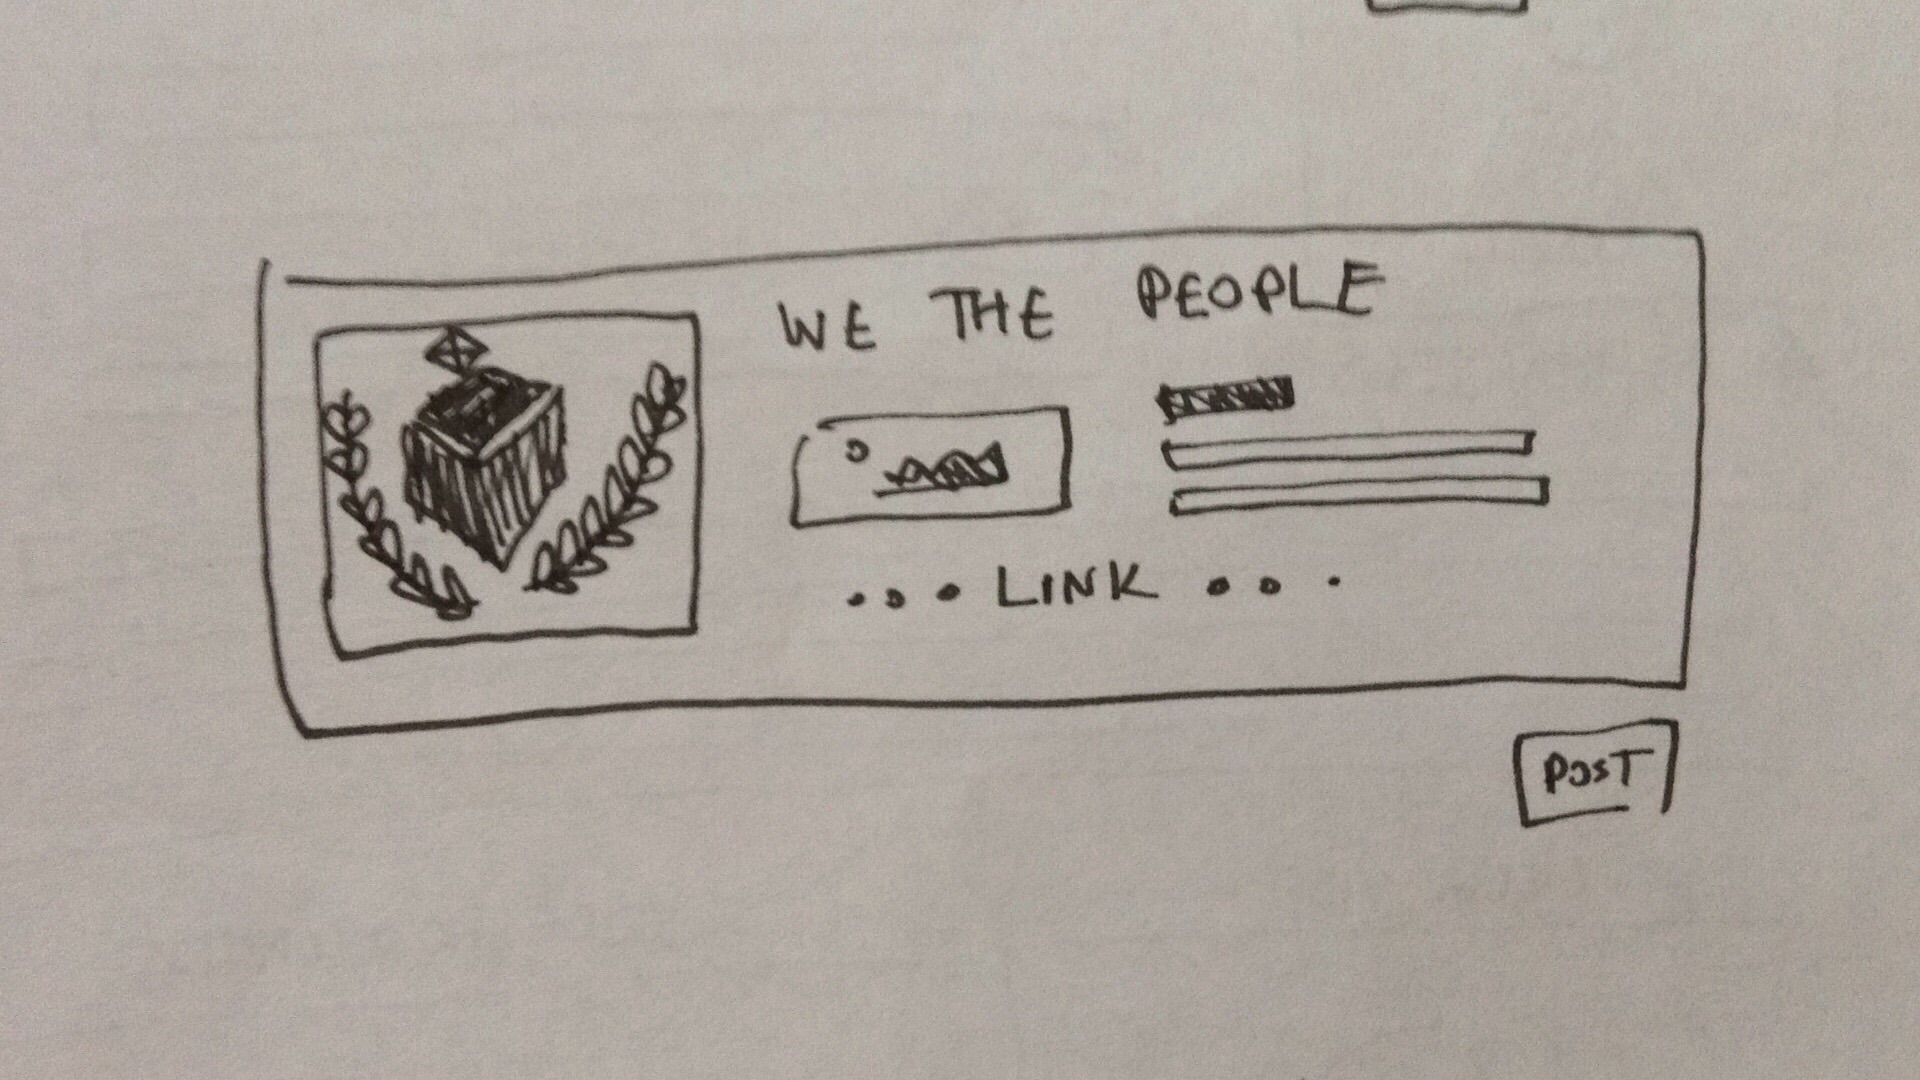 WE THE PEOPLE
... LINK ...
POST